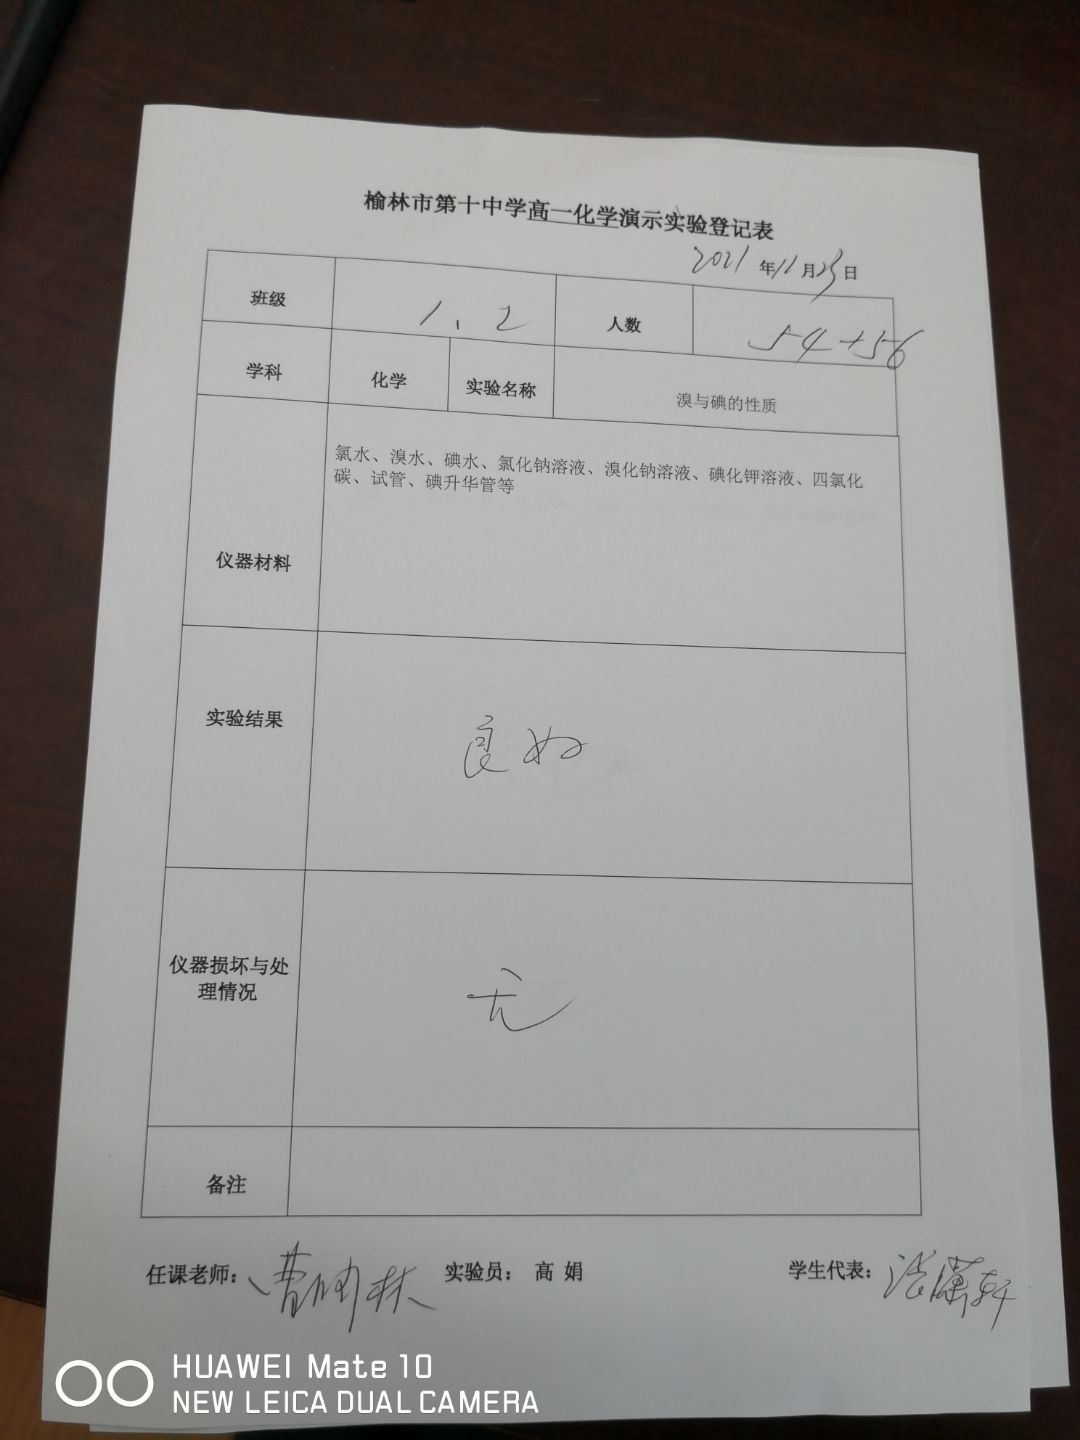 榆林市第十中学高一化学演示实验登记表
2021年11月23日
班级 1、2 人数 54+56
学科 化学 实验名称 溴与碘的性质
氯水、溴水、碘水、氯化钠溶液、溴化钠溶液、碘化钾溶液、四氯化
碳、试管、碘升华管等
仪器材料
实验结果 良好
仪器损坏与处
理情况
无
备注
任课老师： 曹 林 实验员： 高 娟 学生代表： 潇轩
HUAWEI Mate 10
NEW LEICA DUAL CAMERA